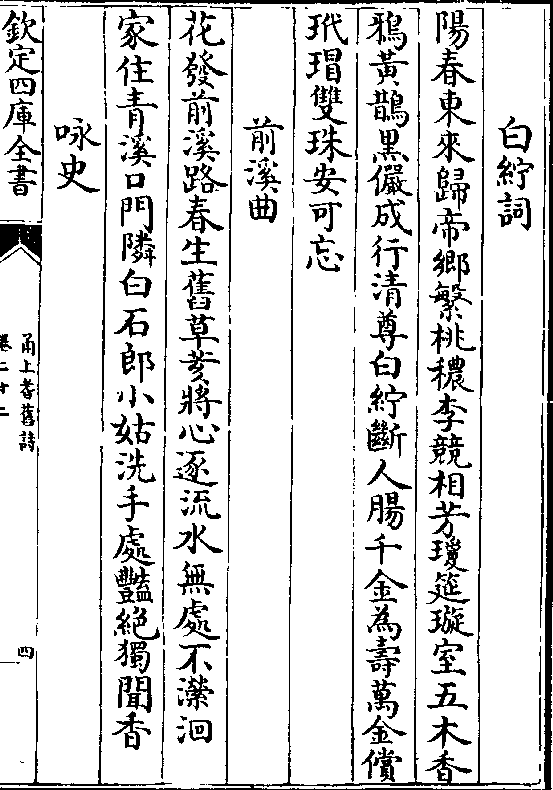 白紵詞
陽春東來歸帝鄉繁桃穠李競相芳瓊筵璇室五木香
鴉黃鵠黑儼成行清尊白紵斷人腸千金為壽萬金償
玳瑁雙珠安可忘
前溪曲
花發前溪路春生舊草荄將心逐流水無處不濴洄
家住青溪口門隣白石郎小姑洗手處豔絕獨聞香
咏史
欽定四庫全書
甬上耆舊詩
卷二十二
四